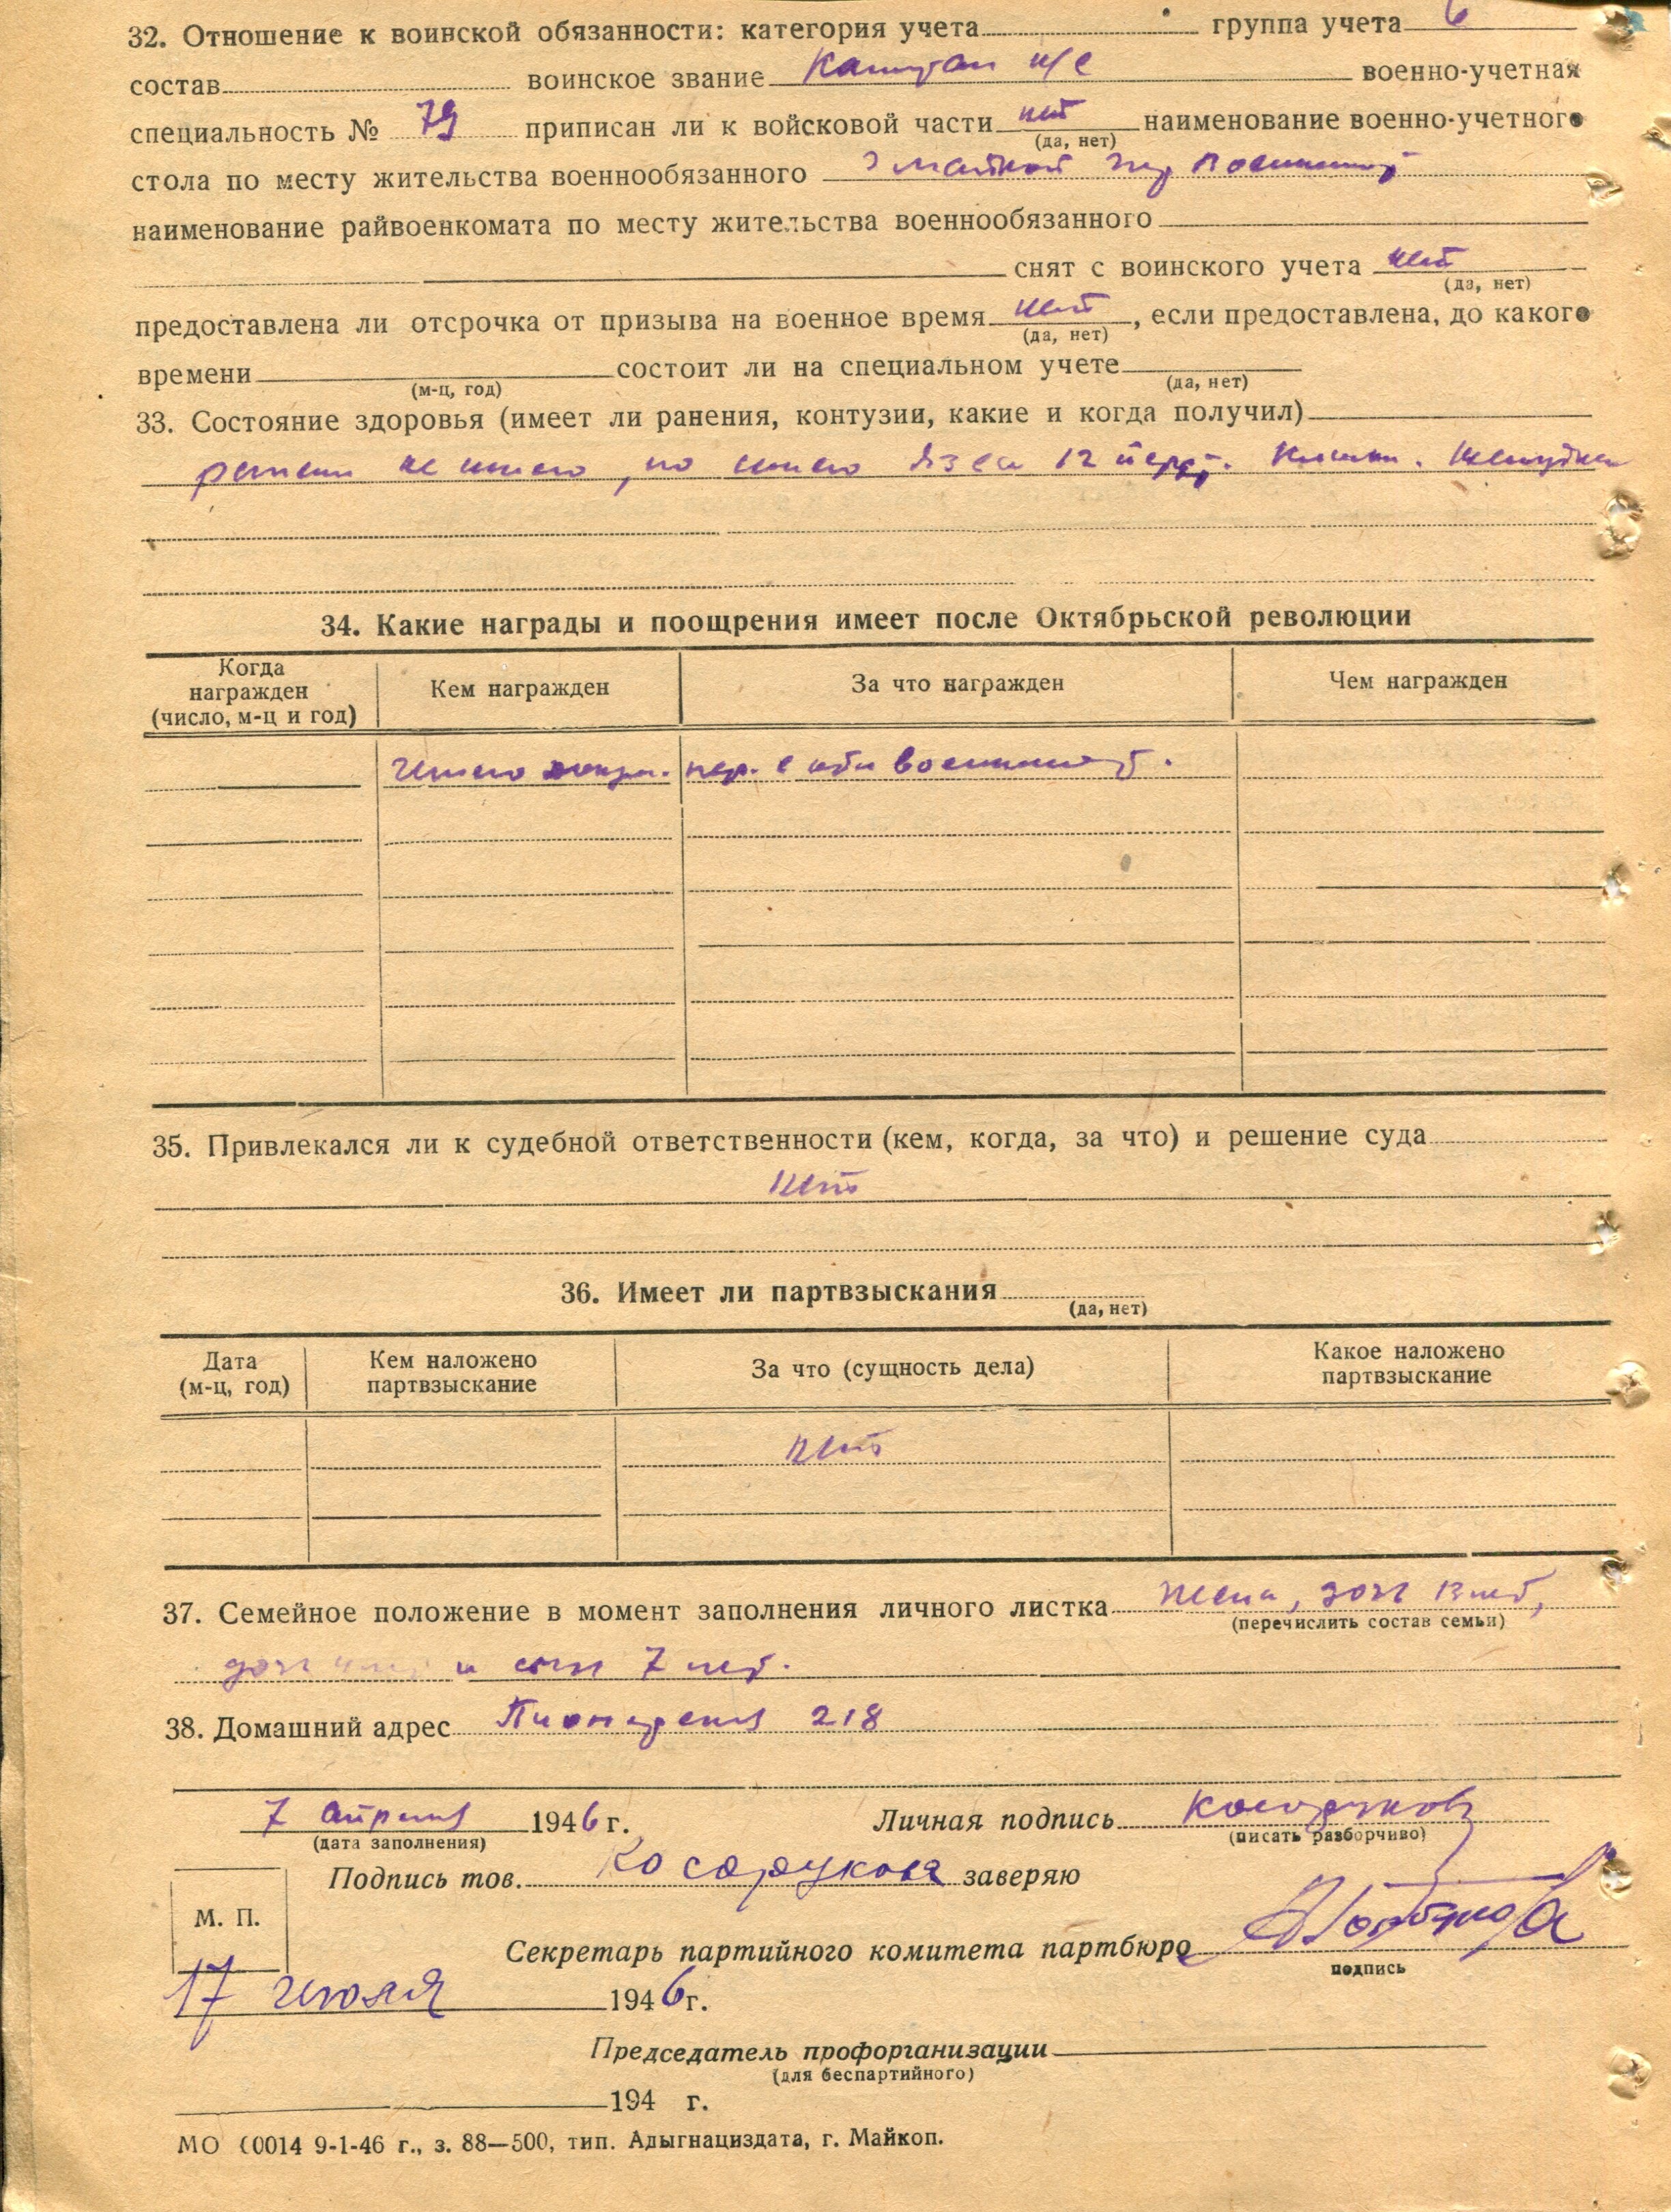 32. Отношение к воинской обязанности: категория учета группа учета 6
состав воинское звание Капитан и/с военно-учетная
специальность № 79 приписан ли к войсковой части нет наименование военно-учетного
(да, нет)
стола по месту жительства военнообязанного
наименование райвоенкомата по месту жительства военнообязанного
снят с воинского учета нет
(да, нет)
предоставлена ли отсрочка от призыва на военное время нет, если предоставлена, до какого
(да, нет)
времени состоит ли на специальном учете
(м-ц, год) (да, нет)
33. Состояние здоровья (имеет ли ранения, контузии, какие и когда получил)
не имею, но имею 12 перст. кишки. желудка
34. Какие награды и поощрения имеет после Октябрьской революции
Когда награжден (число, м-ц и год) Кем награжден За что награжден Чем награжден
имею
35. Привлекался ли к судебной ответственности (кем, когда, за что) и решение суда
нет
36. Имеет ли партвзыскания
(да, нет)
Дата (м-ц, год) Кем наложено партвзыскание За что (сущность дела) Какое наложено партвзыскание
нет
37. Семейное положение в момент заполнения личного листка жена, дочь 13 лет,
(перечислить состав семьи)
дочь и сын 7 лет.
38. Домашний адрес Пионерская 218
7 апреля 1946 г. Личная подпись Косоруков
(дата заполнения) (писать разборчиво)
Подпись тов. Косорукова заверяю
М. П.
Секретарь партийного комитета партбюро
подпись
17 июля 1946 г.
Председатель профорганизации
(для беспартийного)
194 г.
МО 00014 9-1-46 г., з. 88—500, тип. Адыгнациздата, г. Майкоп.